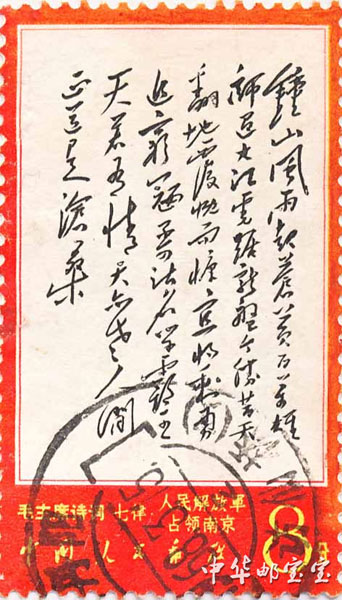 鐘山風雨起蒼黃百萬雄
師過大江虎踞龍盤今勝昔天
翻地覆慨而慷宜將剩勇
追窮寇不可沽名學霸王
天若有情天亦老人間
正道是滄桑
毛主席诗词 七律 人民解放军
占领南京
中国人民邮政
8分
中华邮宝宝